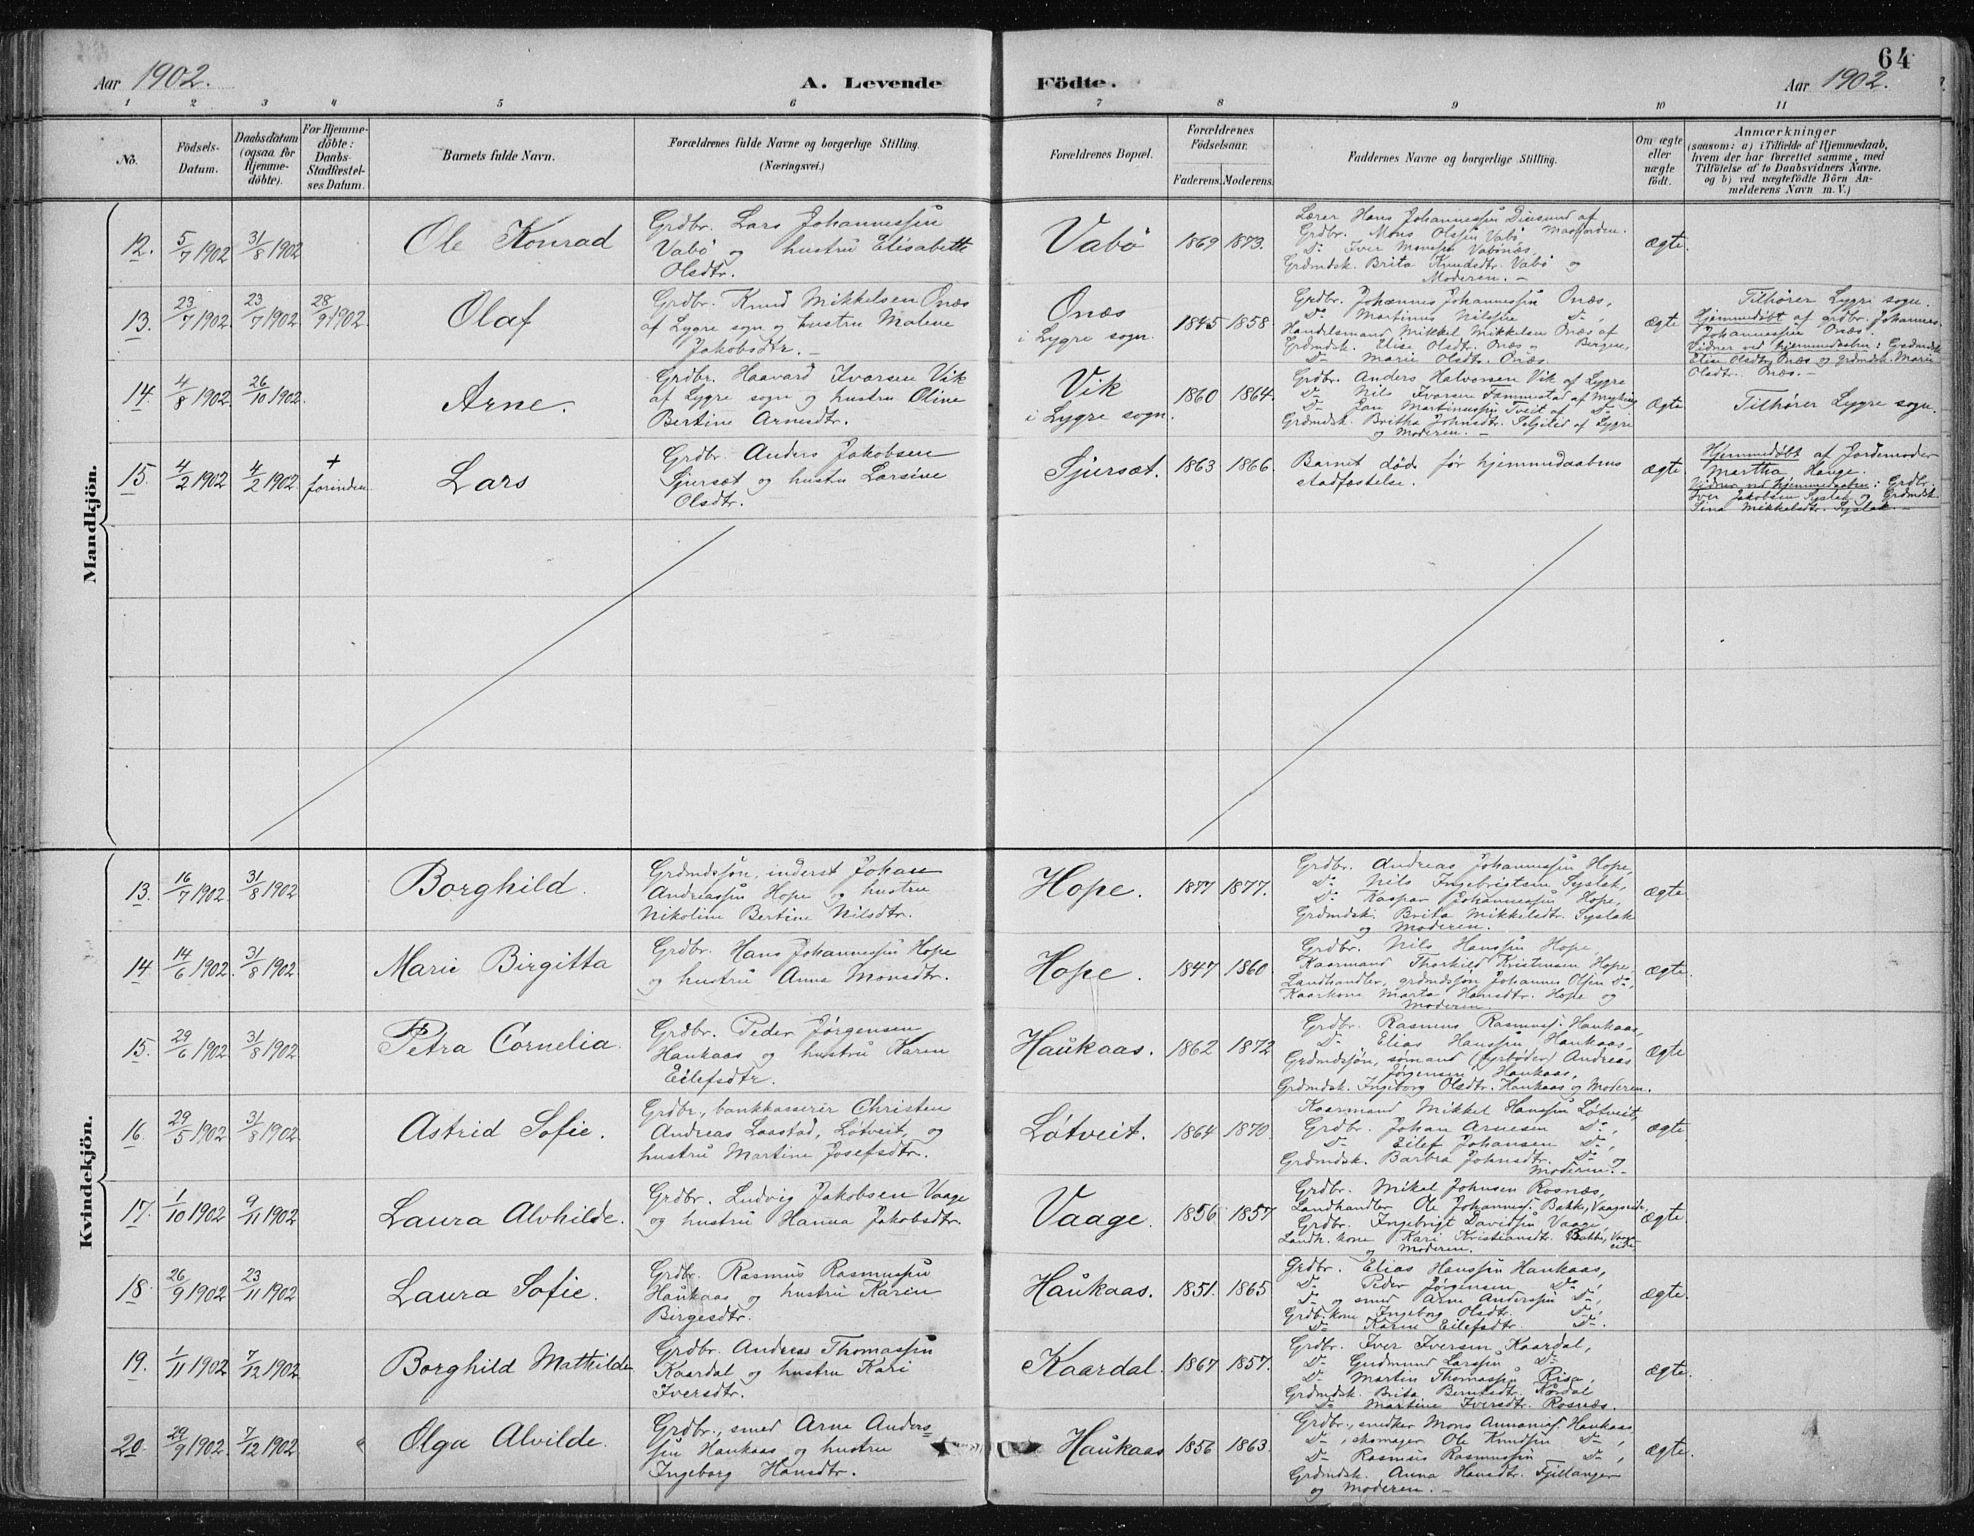 64
Aar 1902. A. Levende Födte. Aar 1902.
1 2 3 4 5 6 7 8 9 10 11
No.
Födsels-
Datum.
Daabsdatum
(ogsaa for
Hjemme-
döbte).
For Hjemme-
döbte:
Daabs-
Stadfæstel-
ses Datum.
Barnets fulde Navn.
Forældrenes fulde Navne og borgerlige Stilling.
(Næringsvei.)
Forældrenes Bopæl.
Forældrenes
Födselsaar.
Faderens. Moderens.
Faddernes Navne og borgerlige Stilling.
Om ægte
eller
uægte
födt.
Anmærkninger
(saasom: a) i Tilfælde af Hjemmedaab,
hvem der har forrettet samme, med
Tilföielse af to Daabsvidners Navne,
og b) ved uægtefödte Börn An-
melderens Navn m. V.)
Mandkjön.
12. 5/7 1902 31/8 1902
Ole Konrad
Grdbr. Lars Johannessen
Vabö og hustru Elisabeth
Olsdtr.
Vabö
1869 1873.
Lærer Hans Johannessen af
Grdbr. Mons Olssen Vabö, Masfjorden.
Do Iver Monssen Vabönæs,
Grdmdsk. Brita Knudsdtr. Vabö og
Moderen. –
ægte.
13. 23/7 1902 23/7 1902 28/9 1902.
Olaf
Grdbr. Knud Mikkelsen Onæs
af Lygre sogn og hustru Malene
Jakobsdtr. –
Onæs
i Lygre sogn.
1845 1858.
Grdbr. Johannes Johannessen Onæs,
Do Martinus Nilssen Do,
Handelsmand Mikkel Mikkelsen Onæs af Bergen,
Grdmdsk. Elise Olsdtr. Onæs og
Do Marie Olsdtr. Onæs.
ægte
Tilhører Lygre sogn.
Hjemmedøbt af grdbr. Johannes
Johannessen Onæs.
Vidner ved hjemmedaaben: Grdmdsk.
Elise Olsdtr. Onæs og grdmdsk. Marie
Olsdtr. Onæs. –
14. 4/8 1902 26/10 1902.
Arne.
Grdbr. Haavard Ivarsen Vik
af Lygre sogn og hustru Oline
Bertine Arnesdtr.
Vik
i Lygre sogn.
1860 1864.
Grdbr. Anders Halvorsen Vik af Lygre
Do Nils Ivarsen af
Do Jan Martinussen Tveit af Do
Grdmdsk. Britha Johnsdtr. af Lygre
og Moderen. –
Ægte
Tilhører Lygre sogn.
15. 4/2 1902 4/2 1902. + forinden.
Lars
Grdbr. Anders Jakobsen
Sjursæt og hustru Larsine
Olsdtr.
Sjursæt.
1863 1866.
Barnet døde før hjemmedaabens
stadfæstelse.
ægte.
Hjemmedøbt af Jordemoder
Martha Hauge.
Vidner ved hjemmedaaben: Grdbr.
Iver Jakobsen Syslak og Grdmdsk.
Sina Mikkelsdtr. Syslak. –
Kvindekjön.
13. 16/7 1902 31/8 1902
Borghild.
Grdmdssøn, inderst Johan
Andreassen Hope og hustru
Nikoline Bertine Nilsdtr.
Hope.
1877 1877.
Grdbr. Andreas Johannessen Hope,
Do Nils Ingebrigtsen Syslak,
Do Kaspar Johannessen Hope,
Grdmdsk. Brita Mikkelsdtr. Syslak
og Moderen.
ægte.
14. 14/6 1902. 31/8 1902
Marie Birgitta
Grdbr. Hans Johannessen Hope
og hustru Anna Monsdtr.
Hope.
1847 1860.
Grdbr. Nils Hanssen Hope
Kaarmand Thorkild Kristensen Hope,
Landhandler, grdmdssøn Johannes Olsen Do,
Kaarkone Marta Hansdtr. Hope og
Moderen
ægte.
15. 29/6 1902 31/8 1902
Petra Cornelia.
Grdbr. Peder Jørgensen
Haukaas og hustru Karen
Eilefsdtr.
Haukaas.
1862 1872
Grdbr. Rasmus Rasmuss. Haukaas,
Do Elias Hanssen Haukaas,
Grdmdssøn, sømand (fyrbøder) Andreas
Jørgensen Haukaas,
Grdmdsk. Ingeborg Olsdtr. Haukaas og Moderen.
ægte
16. 29/5 1902 31/8 1902
Astrid Sofie.
Grdbr., bankkasserer Christen
Andreas Laastad, Løtveit, og
hustru Martine Josefsdtr.
Løtveit.
1864 1870.
Kaarmand Mikkel Hanssen Løtveit,
Grdbr. Johan Arnesen Do,
Do Eilef Johansen Do,
Grdmdsk. Barbra Johnsdtr. Do og
Moderen. –
ægte
17. 1/10 1902 9/11 1902
Laura Alvhilde.
Grdbr. Ludvig Jakobsen Vaage
og hustru Hanna Jakobsdtr.
Vaage.
1856 1857
Grdbr. Mikal Johnsen Rosnæs,
Landhandler Ole Johanness. Bakke, Vaagseide,
Grdbr. Ingebrigt Davidsen Vaage,
Landh. kone Kari Kristiansdtr. Bakke, Vaags-
eide
og Moderen.
ægte.
18. 26/9 1902 23/11 1902
Laura Sofie.
Grdbr. Rasmus Rasmussen
Haukaas og hustru Karen
Birgesdtr.
Haukaas.
1851. 1865
Grdbr. Elias Hanssen Haukaas,
Do Peder Jørgensen Do,
Do og smed Arne Anderssen Do,
Grdbr.kone Ingeborg Olsdtr. Do,
Do Karen Eilefsdtr. Do.
ægte.
19. 1/11 1902 7/12 1902
Borghild Mathilde
Grdbr. Andreas Thomassen
Kaardal og hustru Kari
Iversdtr.
Kaardal.
1867 1857.
Grdbr. Iver Iversen Kaardal,
Do Gudmund Larssen Do
Do Martin Thomassen Risa,
Grdmdsk. Brita Berntsdtr. Kordal
Do Martine Iversdtr. Rosnæs.
ægte.
20. 29/9 1902. 7/12 1902
Olga Alvilde.
Grdbr., smed Arne Anders-
sen Haukaas og hustru
Ingeborg Hansdtr.
Haukaas
1856 1863.
Grdbr., snedker Mons Annanias. Haukaas,
Do, skomager Ole Knudsen Do,
Do Rasmus Rasmussen Do,
Grdmdsk. Anna Hansdtr. Fjellanger
og Moderen. –
ægte.